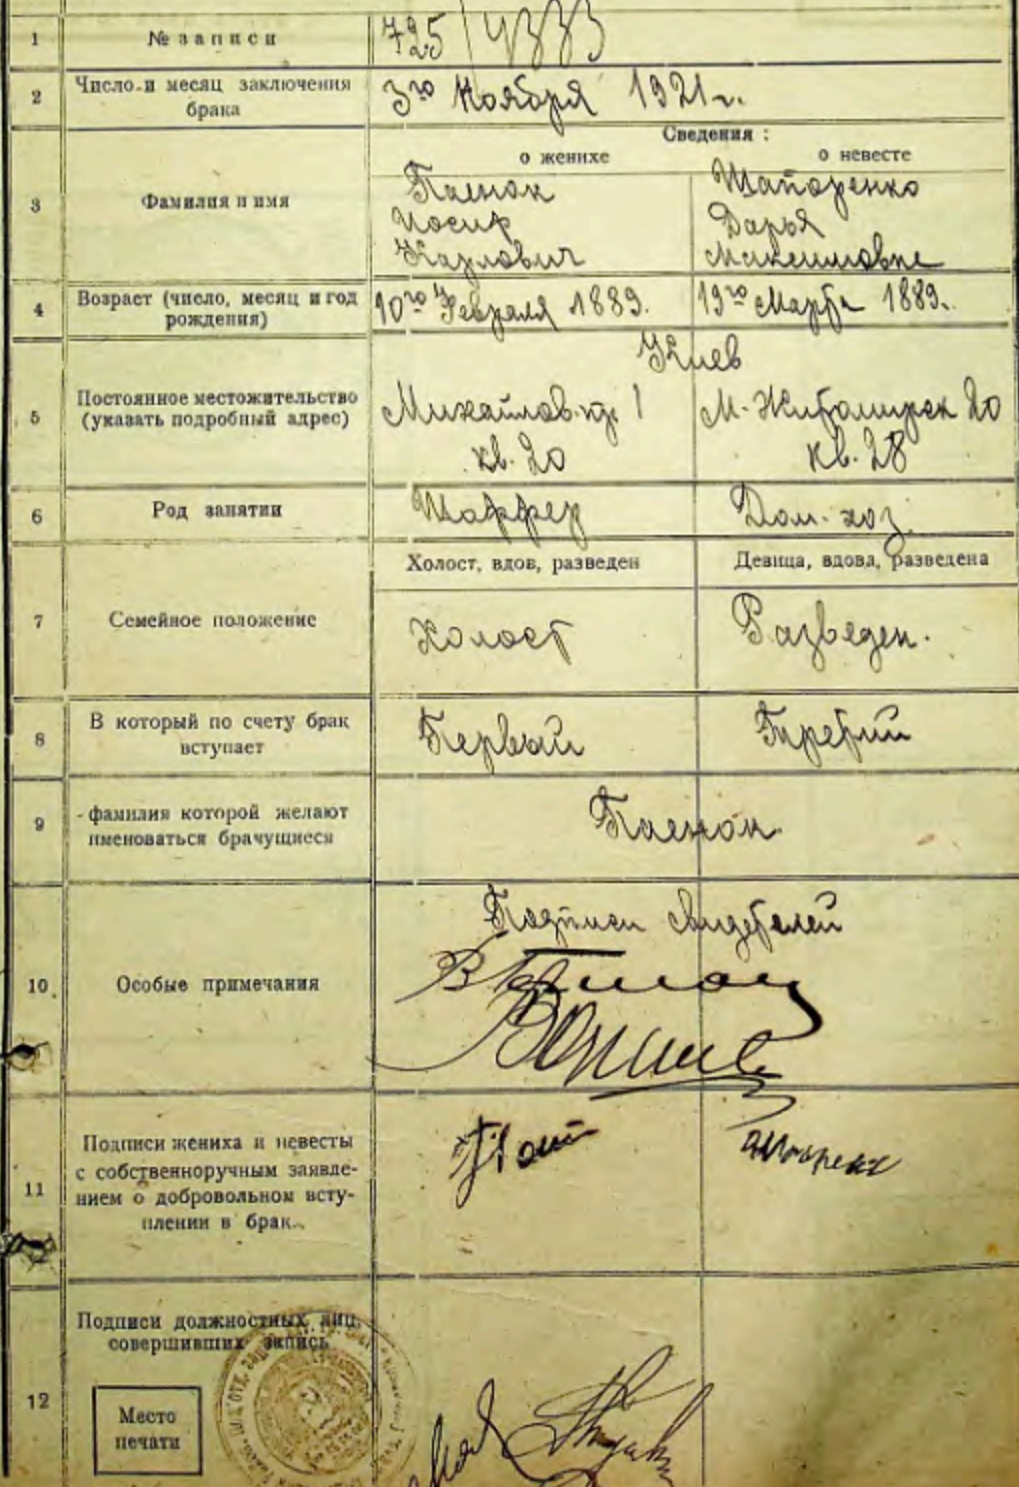 1 № записи 725/4333
2 Число и месяц заключения
брака
3го Ноября 1921 г.
Сведения:
о женихе о невесте
3 Фамилия и имя
Паенок Шапоренко
Иосиф Дарья
Карлович Максимовне
4 Возраст (число, месяц и год
рождения)
10го Февраля 1889. 19го Марта 1889.
Киев
5 Постоянное местожительство
(указать подробный адрес)
Михайлов. пр. 1 М-Житомирск 20
кв. 20 кв. 28
6 Род занятии Шоффер Дом. хоз.
Холост, вдов, разведен Девица, вдова, разведена
7 Семейное положение Холост Разведен.
8 В который по счету брак
вступает
Первый Третий
9 фамилия которой желают
именоваться брачущиеся
Паенок
Подписи свидетелей
10 Особые примечания
11 Подписи жениха и невесты
с собственноручным заявле-
нием о добровольном всту-
плении в брак.
12 Подписи должностных лиц,
совершивших запись
Место
печати